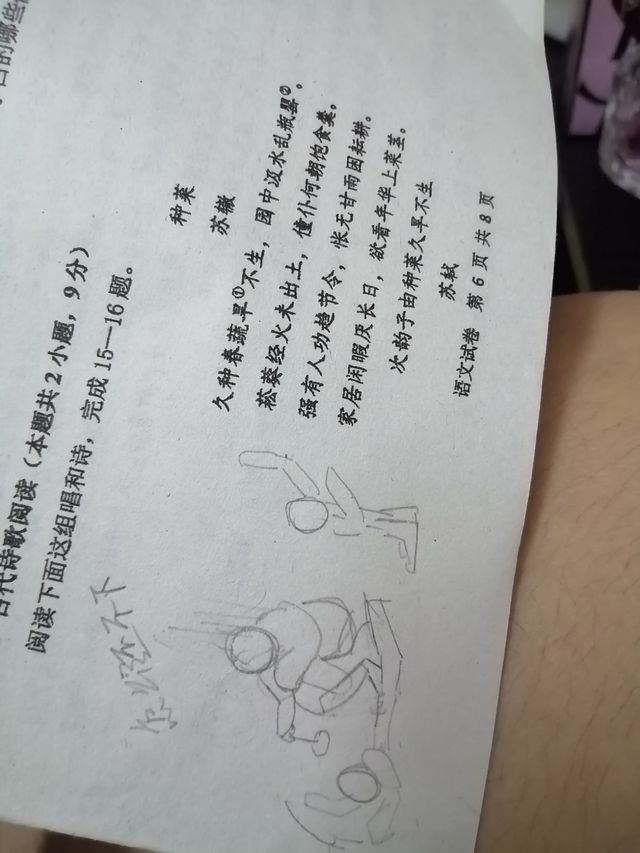 古代诗歌阅读（本题共2小题，9分）
阅读下面这组唱和诗，完成15—16题。
种菜
苏辙
久种春蔬旱①不生，园中汲水乱瓶罂②。
菘葵经火未出土，僮仆何朝饱食羹。
强有人功趋节令，怅无甘雨困耘耕。
家居闲暇厌长日，欲看年华上菜茎。
次韵子由种菜久旱不生
苏轼
语文试卷 第6页共8页